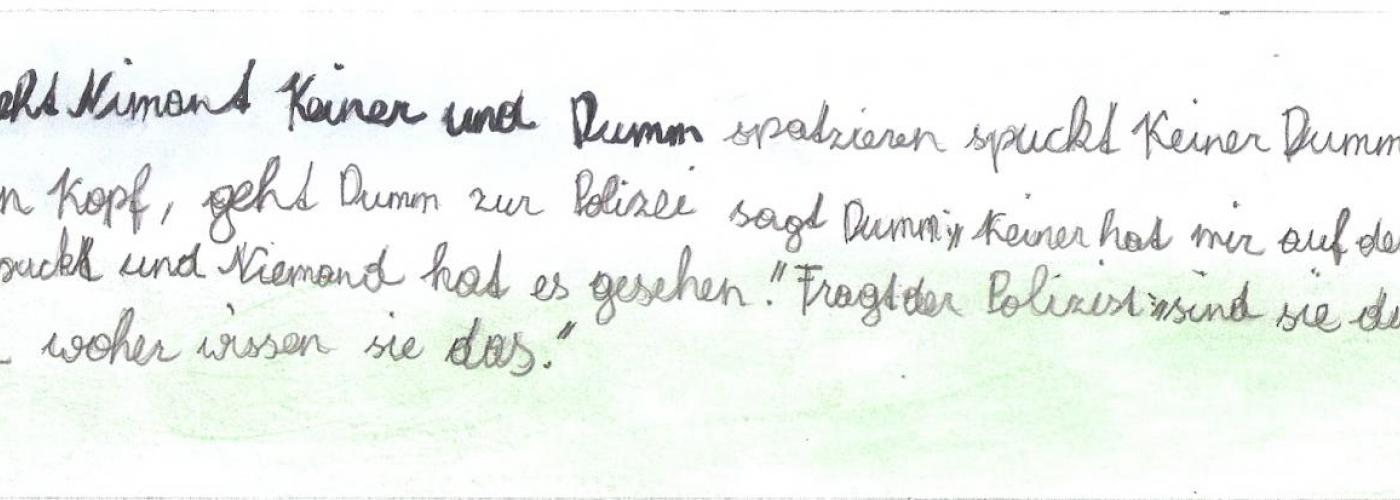 eht Nimand Keiner und Dumm spatzieren spuckt Keiner Dumm
n Kopf, geht Dumm zur Polizei sagt Dumm:„Keiner hat mir auf de
puckt und Niemand hat es gesehen." Fragt der Polizist:„sind sie du
woher wissen sie das."